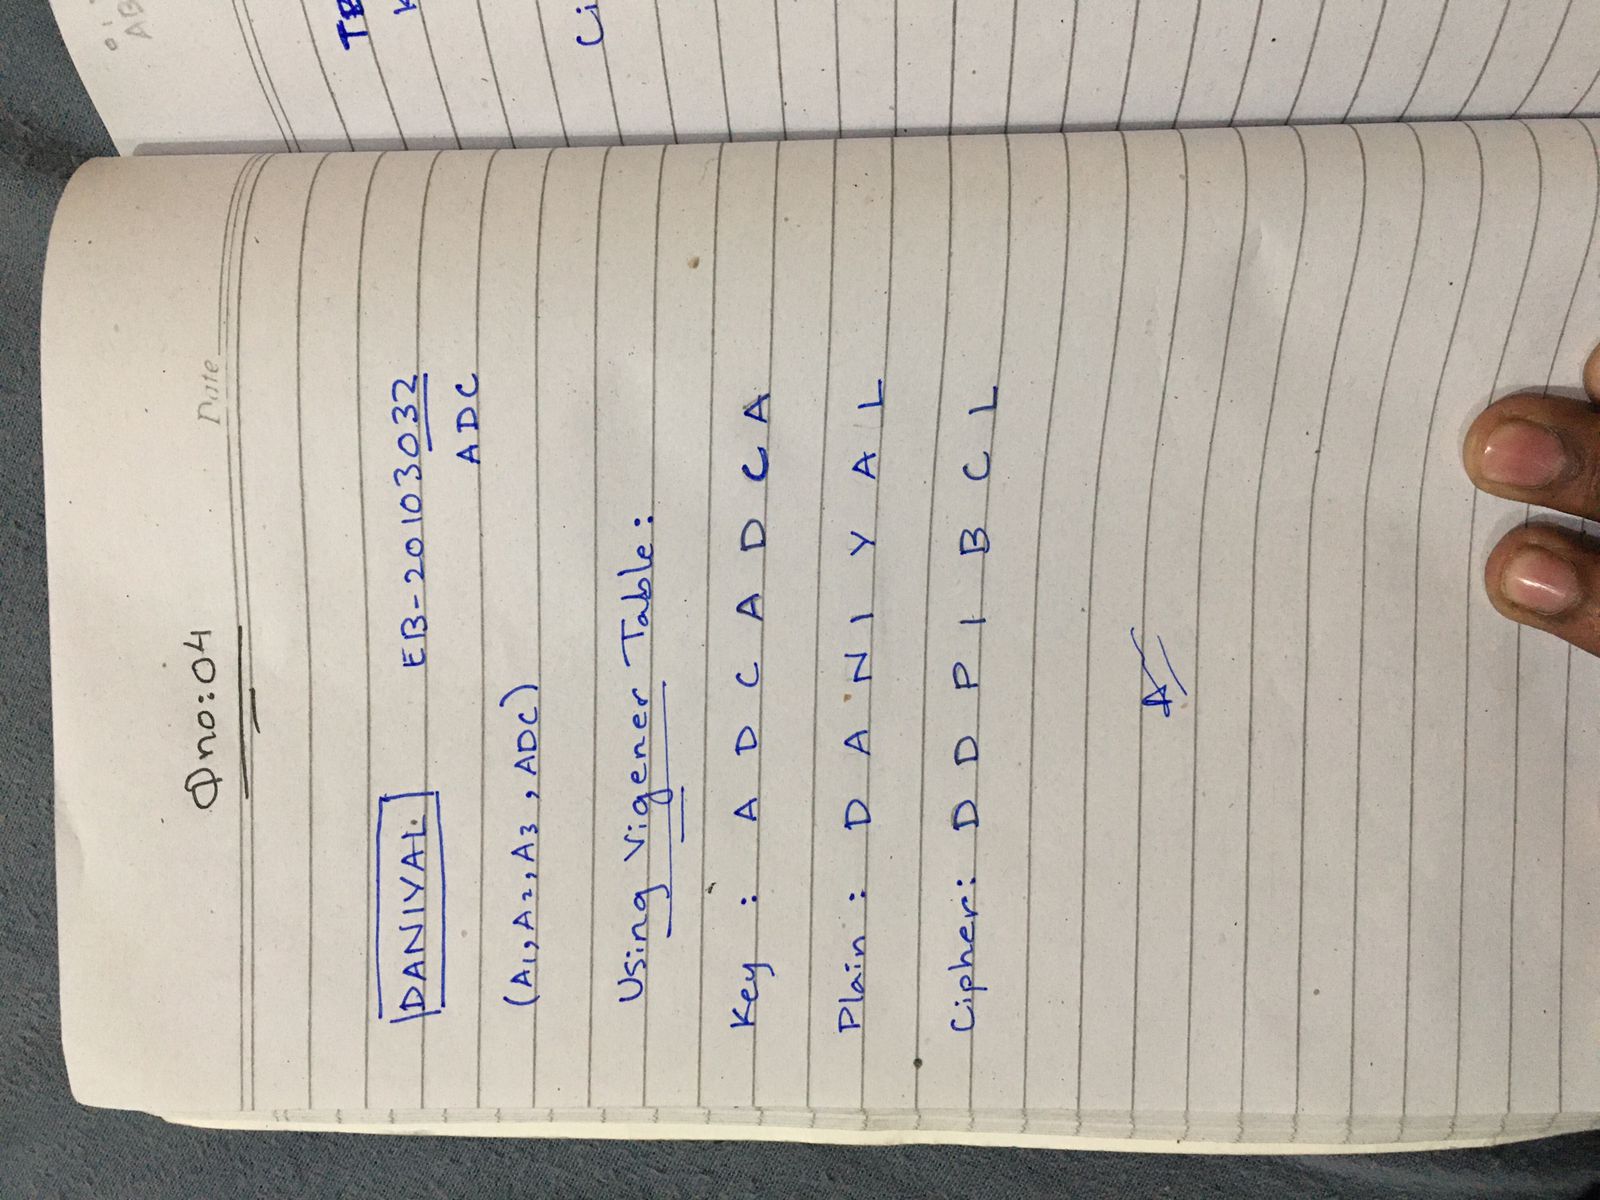 Date
Qno:04
DANIYAL EB-20103032
ADC
(A1, A2, A3, ADC)
Using Vigener Table:
Key : A D C A D C A
Plain : D A N I Y A L
Cipher: D D P I B C L